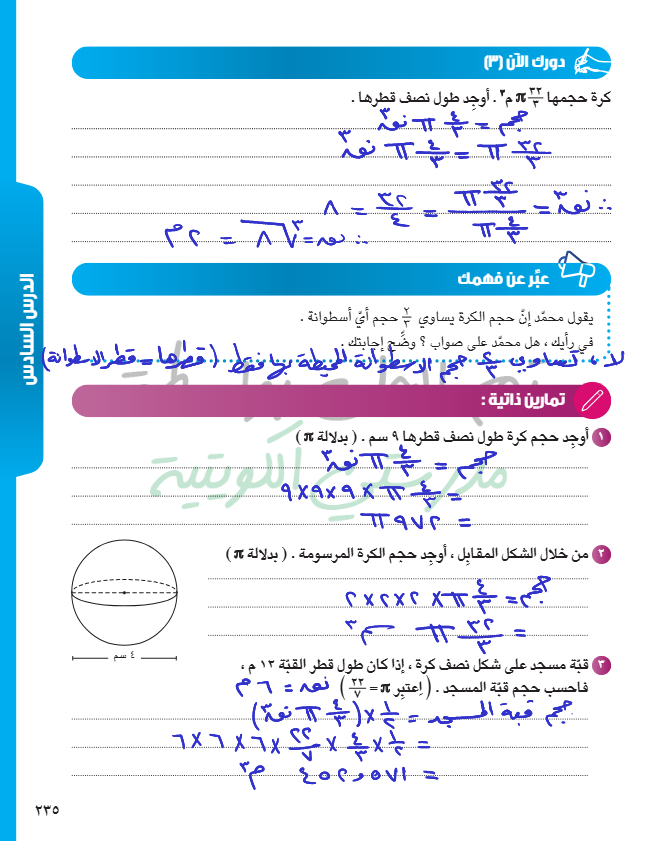 دورك الآن (٣)
كرة حجمها ٣٢/٣ π م٣ . أوجِد طول نصف قطرها .
حجم = ٤/٣ π نق٣
٣٢/٣ π = ٤/٣ π نق٣
∴ نق٣ = (٣٢/٣ π)/(٤/٣ π) = ٣٢/٤ = ٨
∴ نق = ٣√٨ = ٢ م
عبِّر عن فهمك
يقول محمّد إنّ حجم الكرة يساوي ٢/٣ حجم أيّ أسطوانة .
في رأيك ، هل محمّد على صواب ؟ وضِّح إجابتك .
لا ، تساوي ٢/٣ حجم الاسطوانة المحيطة بها فقط (قطرها = قطر الاسطوانة)
تمارين ذاتية :
١ أوجِد حجم كرة طول نصف قطرها ٩ سم . ( بدلالة π )
حجم = ٤/٣ π نق٣
= ٤/٣ π × ٩×٩×٩
= ٩٧٢ π
مدرستي الكويتية
٢ من خلال الشكل المقابِل ، أوجِد حجم الكرة المرسومة . ( بدلالة π )
حجم = ٤/٣ π × ٢×٢×٢
= ٣٢/٣ π سم٣
٤ سم
٣ قبّة مسجد على شكل نصف كرة ، إذا كان طول قطر القبّة ١٢ م ،
فاحسب حجم قبّة المسجد . ( اِعتبِر π = ٢٢/٧ ) نق = ٦ م
حجم قبة المسجد = ١/٢ × (٤/٣ π نق٣)
= ١/٢ × ٤/٣ × ٢٢/٧ × ٦ × ٦ × ٦
= ٤٥٢,٥٧١ م٣
الدرس السادس
٢٣٥